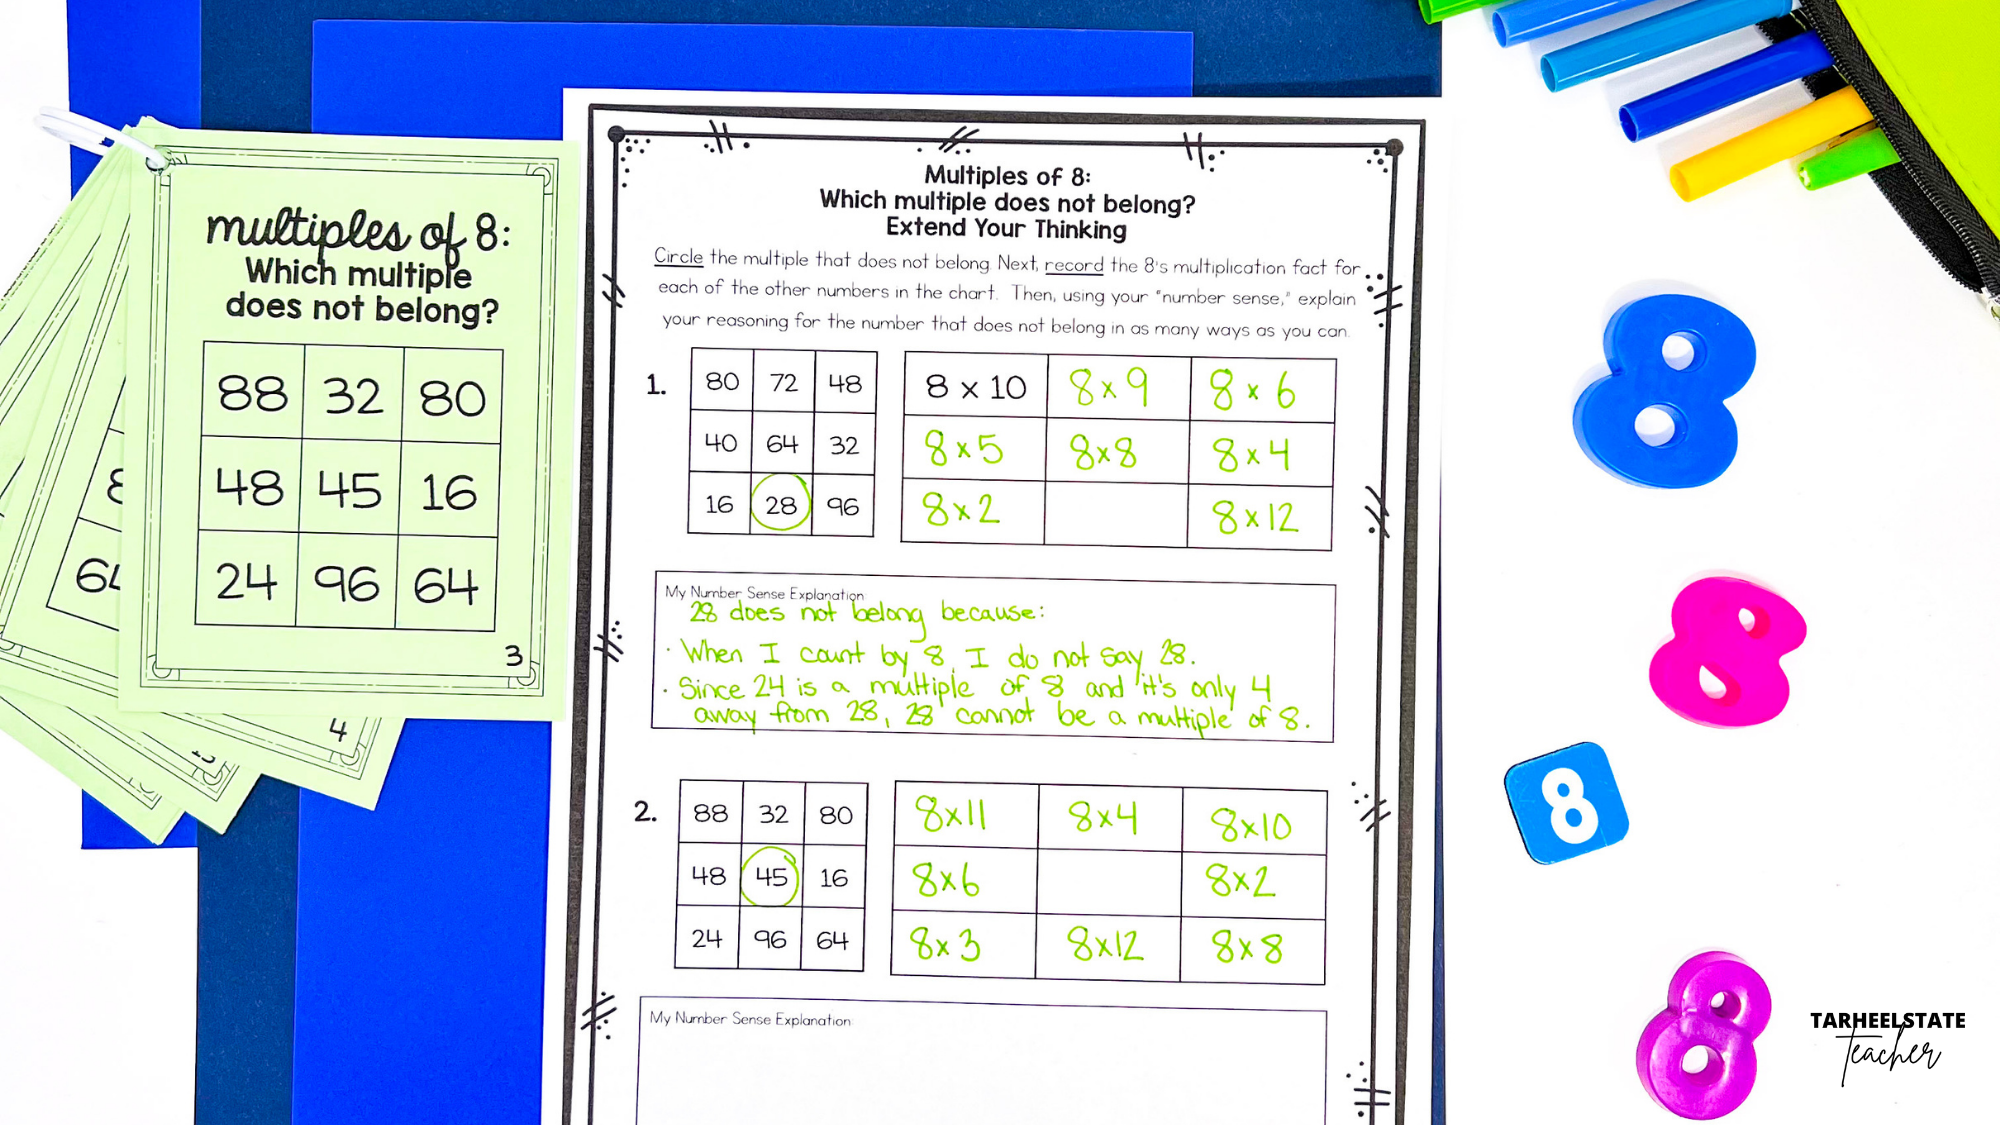 multiples of 8:
Which multiple
does not belong?
88 32 80
48 45 16
24 96 64
3
4
8
64
Multiples of 8:
Which multiple does not belong?
Extend Your Thinking
Circle the multiple that does not belong. Next, record the 8's multiplication fact for
each of the other numbers in the chart. Then, using your "number sense," explain
your reasoning for the number that does not belong in as many ways as you can.
1.
80 72 48
40 64 32
16 28 96
8 x 10 8 x 9 8 x 6
8 x 5 8 x 8 8 x 4
8 x 2 8 x 12
My Number Sense Explanation
28 does not belong because:
· When I count by 8, I do not say 28.
· Since 24 is a multiple of 8 and it's only 4
away from 28, 28 cannot be a multiple of 8.
2.
88 32 80
48 45 16
24 96 64
8x11 8x4 8x10
8x6 8x2
8x3 8x12 8x8
My Number Sense Explanation
8
8
8
8
TARHEELSTATE
teacher